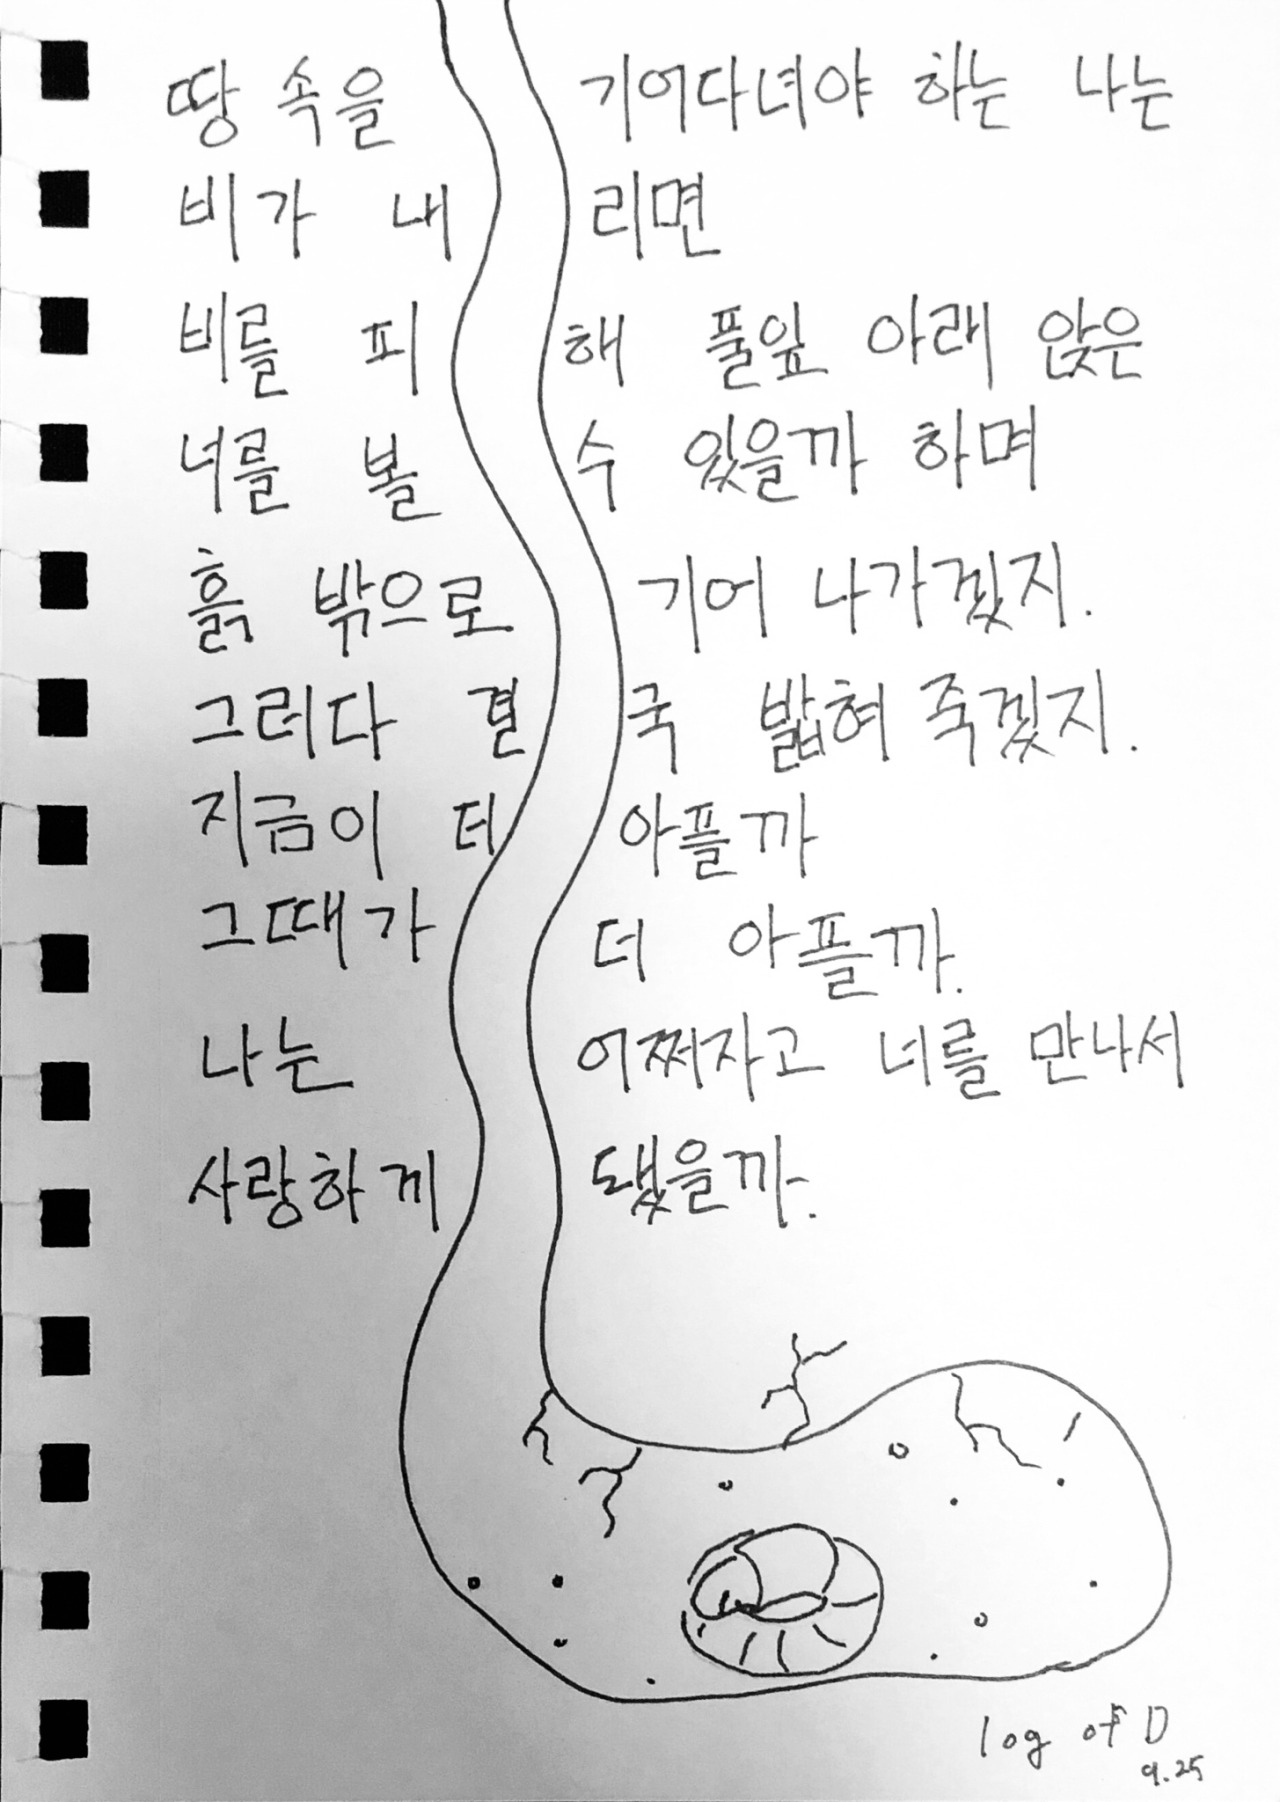 땅 속을 기어다녀야 하는 나는
비가 내리면
비를 피해 풀잎 아래 앉은
너를 볼 수 있을까 하며
흙 밖으로 기어 나가겠지.
그러다 결국 밟혀 죽겠지.
지금이 더 아플까
그때가 더 아플까.
나는 어쩌자고 너를 만나서
사랑하게 됐을까.
log of D
9.25